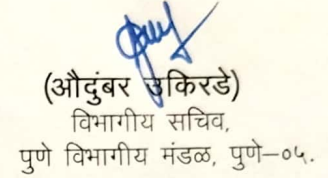 (औदुंबर उकिरडे)
विभागीय सचिव,
पुणे विभागीय मंडळ, पुणे–०५.